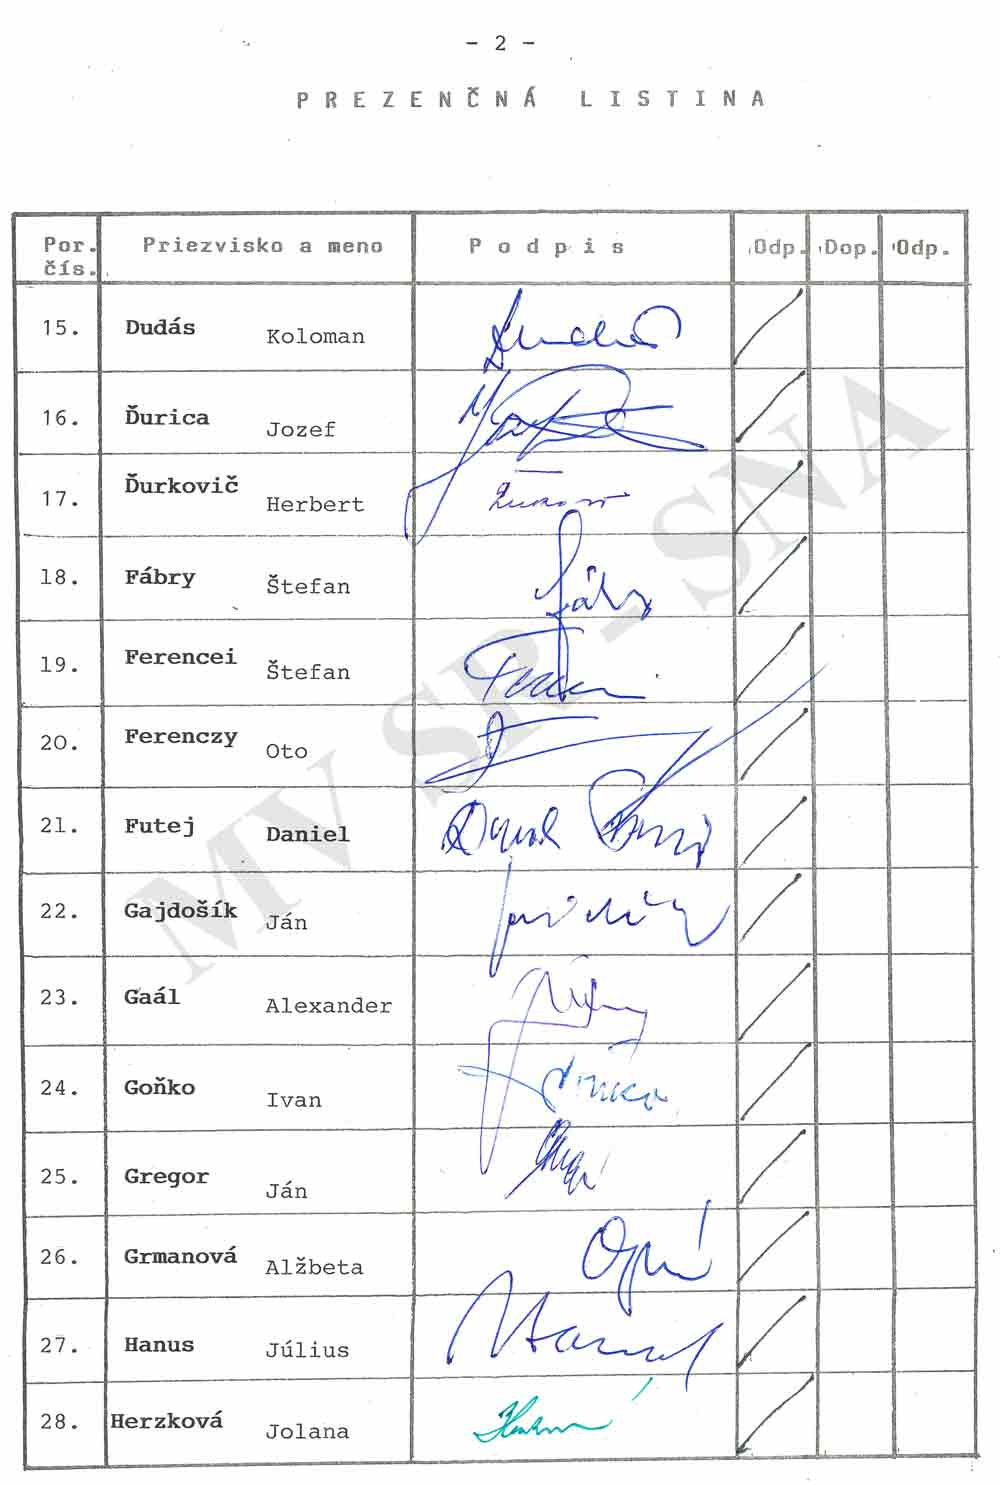 - 2 -
PREZENČNÁ LISTINA
Por. čís. Priezvisko a meno Podpis Odp. Dop. Odp.
15. Dudás Koloman
16. Ďurica Jozef
17. Ďurkovič Herbert
18. Fábry Štefan
19. Ferencei Štefan
20. Ferenczy Oto
21. Futej Daniel
22. Gajdošík Ján
23. Gaál Alexander
24. Goňko Ivan
25. Gregor Ján
26. Grmanová Alžbeta
27. Hanus Július
28. Herzková Jolana
MV SR - SNA